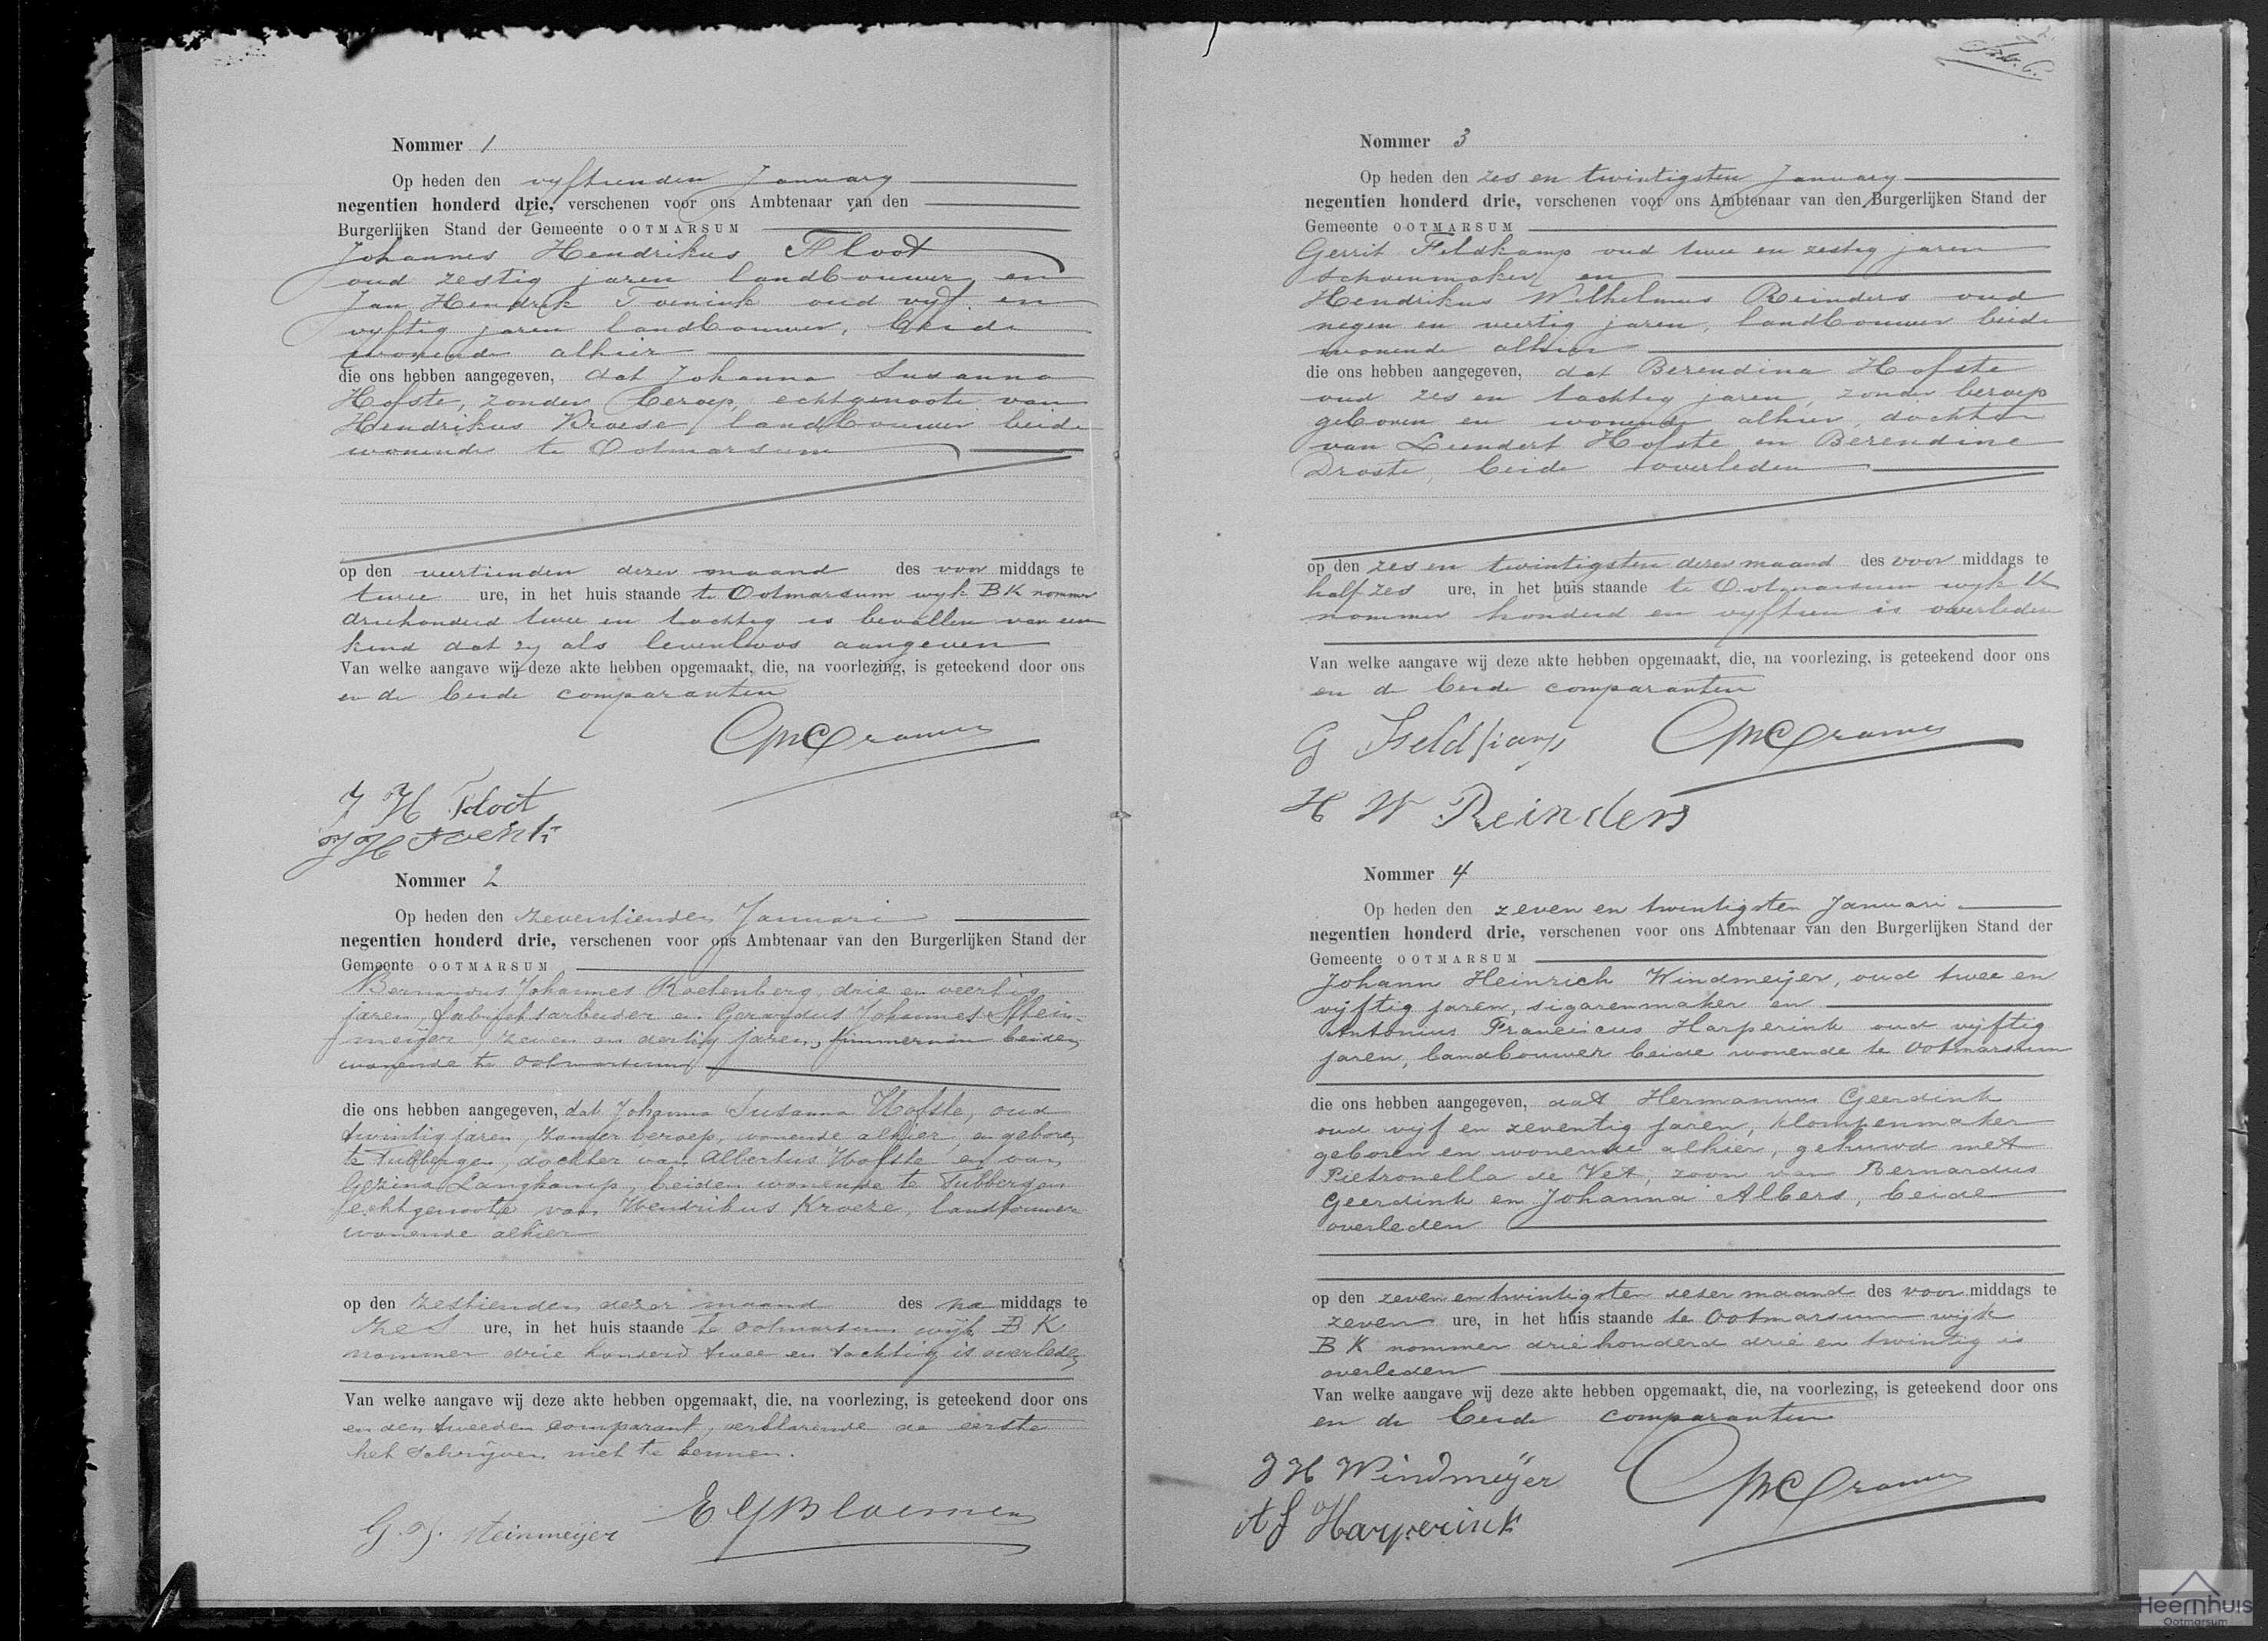 Nommer 1
Op heden den vyftienden January
negentien honderd drie, verschenen voor ons Ambtenaar van den
Burgerlijken Stand der Gemeente OOTMARSUM
Johannes Hendrikus Floot
oud zestig jaren landbouwer en
Jan Hendrik oud vyf en
vyftig jaren landbouwer, beide
wonende alhier
die ons hebben aangegeven, dat Johanna Susanna
Hofste, zonder beroep, echtgenoote van
Hendrikus Kroese landbouwer beide
wonende te Ootmarsum
op den veertienden dezer maand des voor middags te
twee ure, in het huis staande te Ootmarsum wyk BK nommer
driehonderd twee en tachtig is bevallen van een
kind dat zy als levenloos aangeven
Van welke aangave wij deze akte hebben opgemaakt, die, na voorlezing, is geteekend door ons
en de beide comparanten
J H Floot
Nommer 2
Op heden den zeventienden Januari
negentien honderd drie, verschenen voor ons Ambtenaar van den Burgerlijken Stand der
Gemeente OOTMARSUM
Bernardus Johannes drie en veertig
jaren, fabrieksarbeider en Gerardus Johannes Stein-
meijer, zeven en dertig jaren, timmerman beiden
wonende te Ootmarsum
die ons hebben aangegeven, dat Johanna Susanna Hofste, oud
twintig jaren, zonder beroep, wonende alhier, en geboren
te Tubbergen, dochter van Albertus Hofste en van
Gezina Langkamp, beiden wonende te Tubbergen
echtgenoote van Hendrikus Kroeze, landbouwer
wonende alhier
op den zestienden dezer maand des na middags te
zes ure, in het huis staande te Ootmarsum wijk B K
nommer drie honderd twee en tachtig is overleden
Van welke aangave wij deze akte hebben opgemaakt, die, na voorlezing, is geteekend door ons
en den tweeden comparant, verklarende de eerste
het schrijven niet te kennen.
G. J. Steinmeijer
Bloemen
Nommer 3
Op heden den zes en twintigsten January
negentien honderd drie, verschenen voor ons Ambtenaar van den Burgerlijken Stand der
Gemeente OOTMARSUM
Gerrit Feldkamp oud twee en zestig jaren
schoenmaker en
Hendrikus Wilhelmus Reinders oud
negen en veertig jaren, landbouwer beide
wonende alhier
die ons hebben aangegeven, dat Berendina Hofste
oud zes en tachtig jaren, zonder beroep
geboren en wonende alhier, dochter
van Leendert Hofste en Berendine
Droste, beide overleden
op den zes en twintigsten dezer maand des voor middags te
half zes ure, in het huis staande te Ootmarsum wyk
nommer honderd en vyftien is overleden
Van welke aangave wij deze akte hebben opgemaakt, die, na voorlezing, is geteekend door ons
en de beide comparanten
G Feldkamp
H W Reinders
Nommer 4
Op heden den zeven en twintigsten Januari
negentien honderd drie, verschenen voor ons Ambtenaar van den Burgerlijken Stand der
Gemeente OOTMARSUM
Johann Heinrich Windmeijer, oud twee en
vijftig jaren, sigarenmaker en
Antonius Franciscus Harperink oud vijftig
jaren, landbouwer beide wonende te Ootmarsum
die ons hebben aangegeven, dat Hermannus Geerdink
oud vijf en zeventig jaren, klompenmaker
geboren en wonende alhier, gehuwd met
Pietronella de Vet, zoon van Bernardus
Geerdink en Johanna Albers, beide
overleden
op den zeven en twintigsten dezer maand des voor middags te
zeven ure, in het huis staande te Ootmarsum wijk
B K nommer driehonderd drie en twintig is
overleden
Van welke aangave wij deze akte hebben opgemaakt, die, na voorlezing, is geteekend door ons
en de beide comparanten
J H Windmeijer
A F Harperink
Heemhuis
Ootmarsum